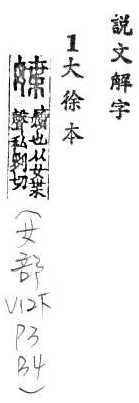 說文解字
1大徐本
媟
嬻也从女枼
聲私列切
(女部
V12下
P3
B4)